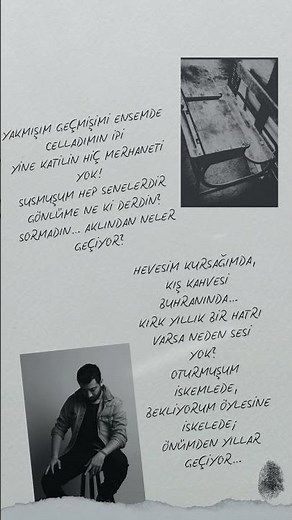 YAKMIŞIM GEÇMİŞİMİ ENSEMDE
CELLADIMIN İPİ
YİNE KATİLİN HİÇ MERHANETİ
YOK!
SUSMUŞUM HEP SENELERDİR
GÖNLÜME NE Kİ DERDİN?
SORMADIN... AKLINDAN NELER
GEÇİYOR?
HEVESİM KURSAĞIMDA,
KIŞ KAHVESİ
BUHRANINDA...
KIRK YILLIK BİR HATRI
VARSA NEDEN SESİ
YOK?
OTURMUŞUM
İSKEMLEDE,
BEKLİYORUM ÖYLESİNE
İSKELEDE;
ÖNÜMDEN YILLAR
GEÇİYOR...